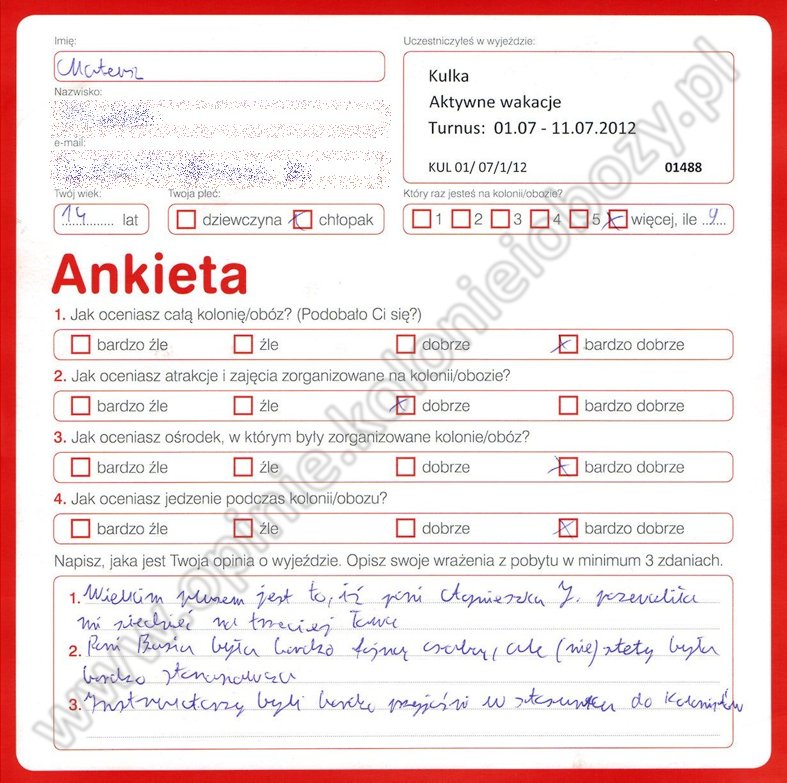 Imię:
Mateusz
Nazwisko:
e-mail:
Twój wiek:
14 lat
Twoja płeć:
dziewczyna chłopak
Uczestniczyłeś w wyjeździe:
Kulka
Aktywne wakacje
Turnus: 01.07 - 11.07.2012
KUL 01/ 07/1/12 01488
Który raz jesteś na kolonii/obozie?
1 2 3 4 5 więcej, ile 9
Ankieta
1. Jak oceniasz całą kolonię/obóz? (Podobało Ci się?)
bardzo źle źle dobrze bardzo dobrze
2. Jak oceniasz atrakcje i zajęcia zorganizowane na kolonii/obozie?
bardzo źle źle dobrze bardzo dobrze
3. Jak oceniasz ośrodek, w którym były zorganizowane kolonie/obóz?
bardzo źle źle dobrze bardzo dobrze
4. Jak oceniasz jedzenie podczas kolonii/obozu?
bardzo źle źle dobrze bardzo dobrze
Napisz, jaka jest Twoja opinia o wyjeździe. Opisz swoje wrażenia z pobytu w minimum 3 zdaniach.
1. Wielkim plusem jest to, iż pani Agnieszka J. pozwoliła
mi siedzieć na trzeciej ławce
2. Pani Basia była bardzo fajną osobą, ale (nie)stety była
bardzo stanowcza
3. Instruktorzy byli bardzo przyjaźni w stosunku do kolonistów
www.opinie.kolonieiobozy.pl